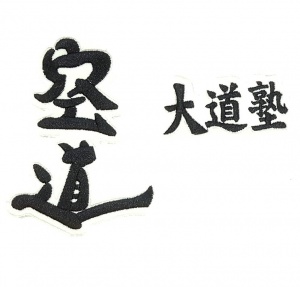 空道
大道塾